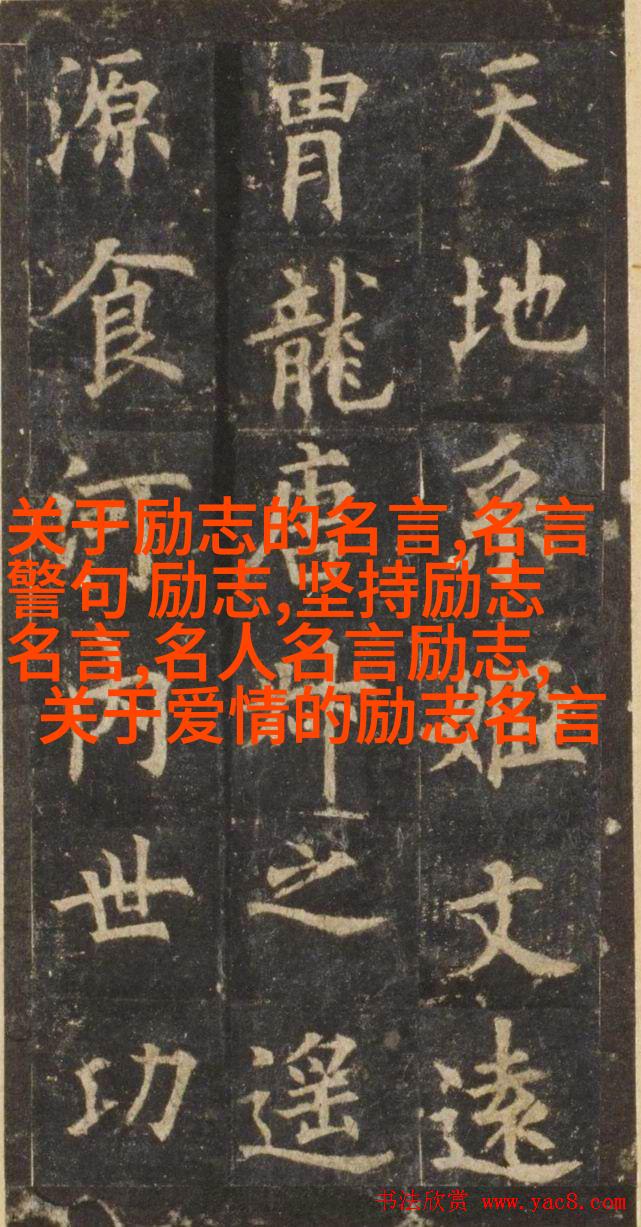 天地姬文遠
胄龍之遥
源食河内世功
关于励志的名言,名言
警句 励志,坚持励志
名言,名人名言励志,
关于爱情的励志名言
书法欣赏 www.yac8.com